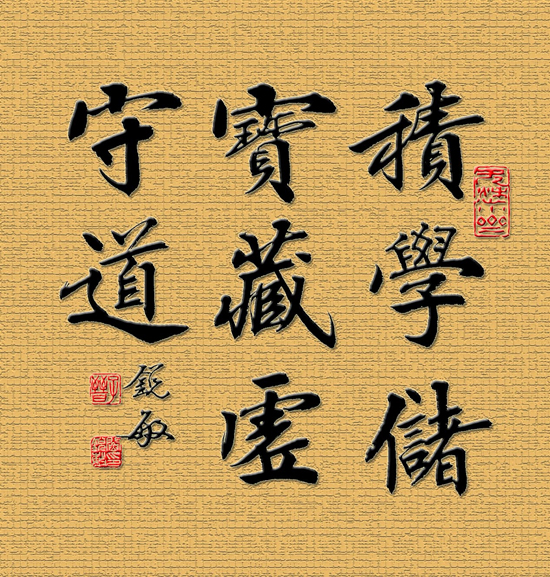 積學儲
寶藏虛
守道
銳敏